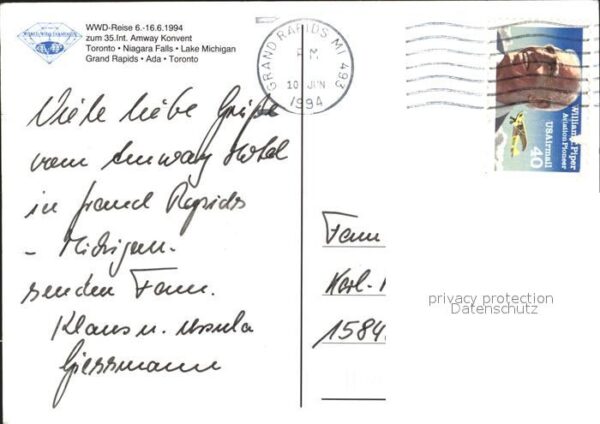 WWD-Reise 6.-16.6.1994
zum 35.Int. Amway Konvent
Toronto • Niagara Falls • Lake Michigan
Grand Rapids • Ada • Toronto
GRAND RAPIDS MI 493
PM
10 JUN
1994
William T. Piper
Aviation Pioneer
USAirmail
40
Viele liebe Grüße
vom Amway Hotel
in Grand Rapids
- Michigan -
senden Fam.
Klaus u. Ursula
Giessmann
Fam
Karl-
1584
privacy protection
Datenschutz